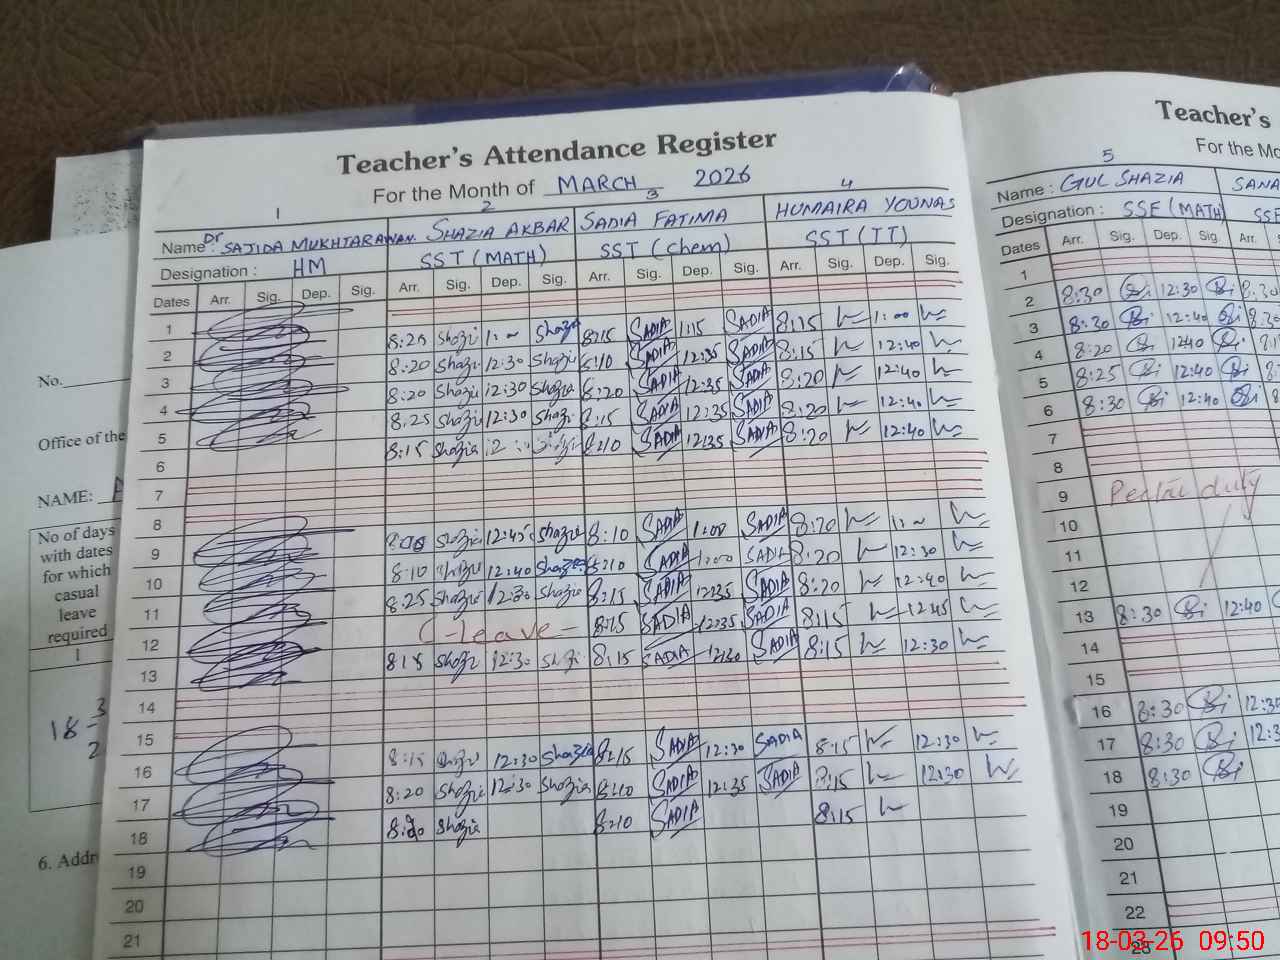 Teacher's Attendance Register
For the Month of MARCH 2026
1 2 3 4
Name: Dr SAJIDA MUKHTAR AWAN. SHAZIA AKBAR SADIA FATIMA HUMAIRA YOUNAS
Designation: HM SST (MATH) SST (Chem) SST (IT)
Dates Arr. Sig. Dep. Sig. Arr. Sig. Dep. Sig. Arr. Sig. Dep. Sig. Arr. Sig. Dep. Sig.
1
2 8:20 Shazia 8:15 SADIA 1:15 SADIA 8:15 1:00
3 8:20 Shazia 12:30 Shazia 8:10 SADIA 12:35 SADIA 8:15 12:40
4 8:20 Shazia 12:30 Shazia 8:20 SADIA 12:35 SADIA 8:20 12:40
5 8:25 Shazia 12:30 Shazi 8:15 SADIA 12:35 SADIA 8:20 12:40
6 8:15 Shazia 8:10 SADIA 12:35 SADIA 8:20 12:40
7
8
9 Shazia 12:45 Shazia 8:10 SADIA 1:00 SADIA 8:20
10 8:10 Shazia 12:40 Shazia 8:10 SADIA 1:00 SADIA 8:20 12:30
11 8:25 Shazia 12:30 Shazia 8:15 SADIA 12:35 SADIA 8:20 12:40
12 C-leave- 8:15 SADIA 12:35 SADIA 8:15 12:45
13 8:15 Shazi 12:30 8:15 SADIA 12:30 SADIA 8:15 12:30
14
15
16 8:15 12:30 Shazia 8:15 SADIA 12:30 SADIA 8:15 12:30
17 8:20 Shazia 12:30 Shazia 8:10 SADIA 12:35 SADIA 8:15 12:30
18 8:20 Shazia 8:10 SADIA 8:15
19
20
21
Teacher's
For the Mo
5
Name: GUL SHAZIA SANA
Designation: SSE (MATH) SSE
Dates Arr. Sig. Dep. Sig. Arr.
1
2 8:30 12:30 8:30
3 8:20 12:40
4 8:20 12:40
5 8:25 12:40
6 8:30 12:40
7
8
9 duty
10
11
12
13 8:30 12:40
14
15
16 8:30 12:30
17 8:30
18 8:30
19
20
21
22
23
No.
Office of the
NAME:
No of days
with dates
for which
casual
leave
required
1
18-3
2
6. Addr
18-03-26 09:50